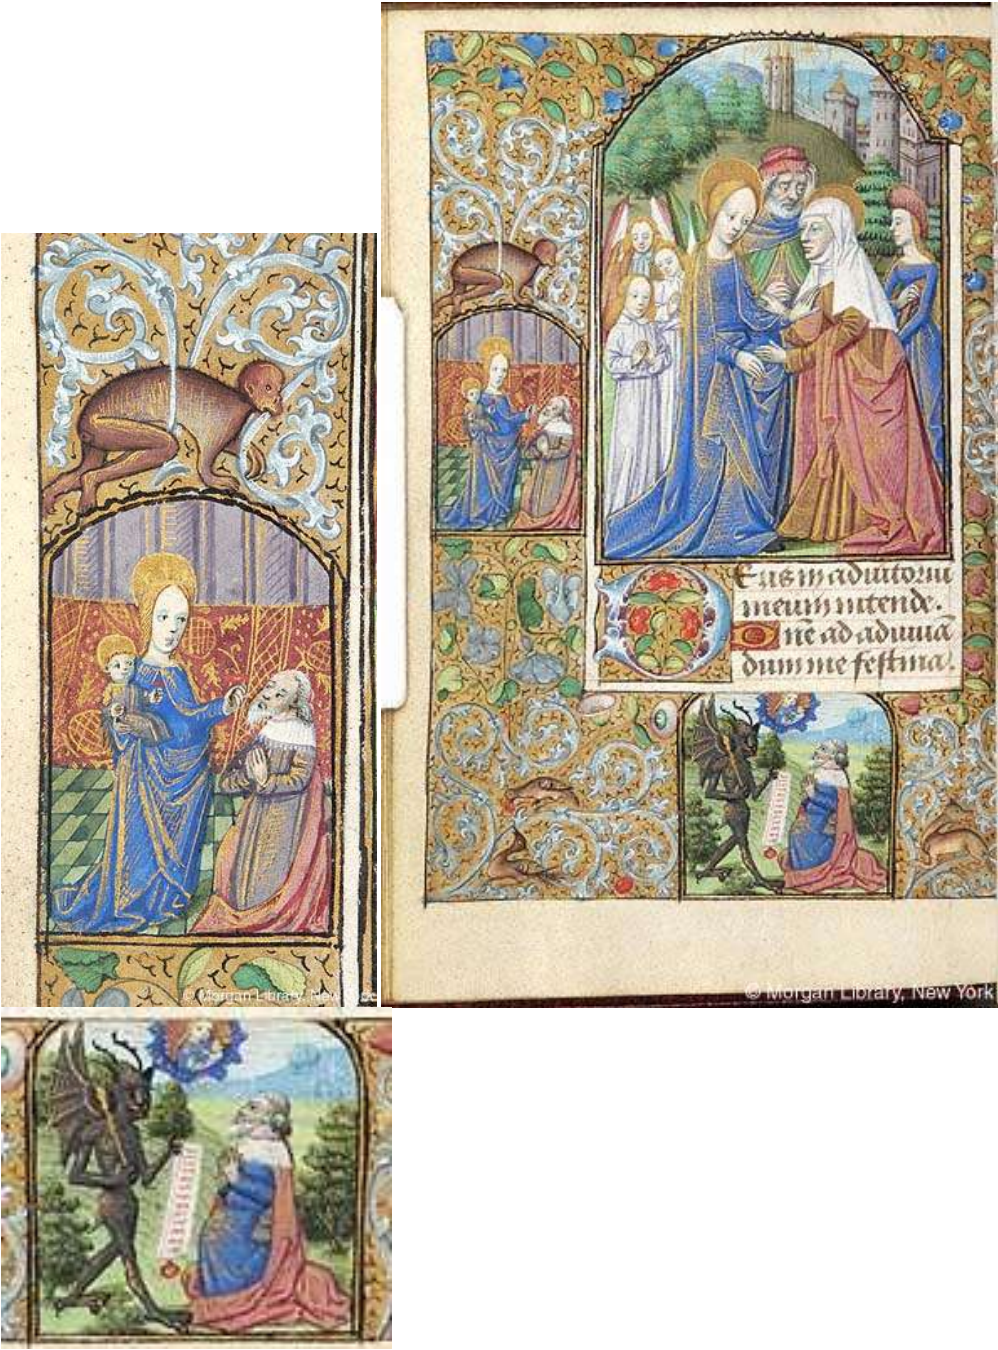 Eus in adiutoriu
meum intende.
Dne ad adiuua
dum me festina.
© Morgan Library, New York
© Morgan Library, New